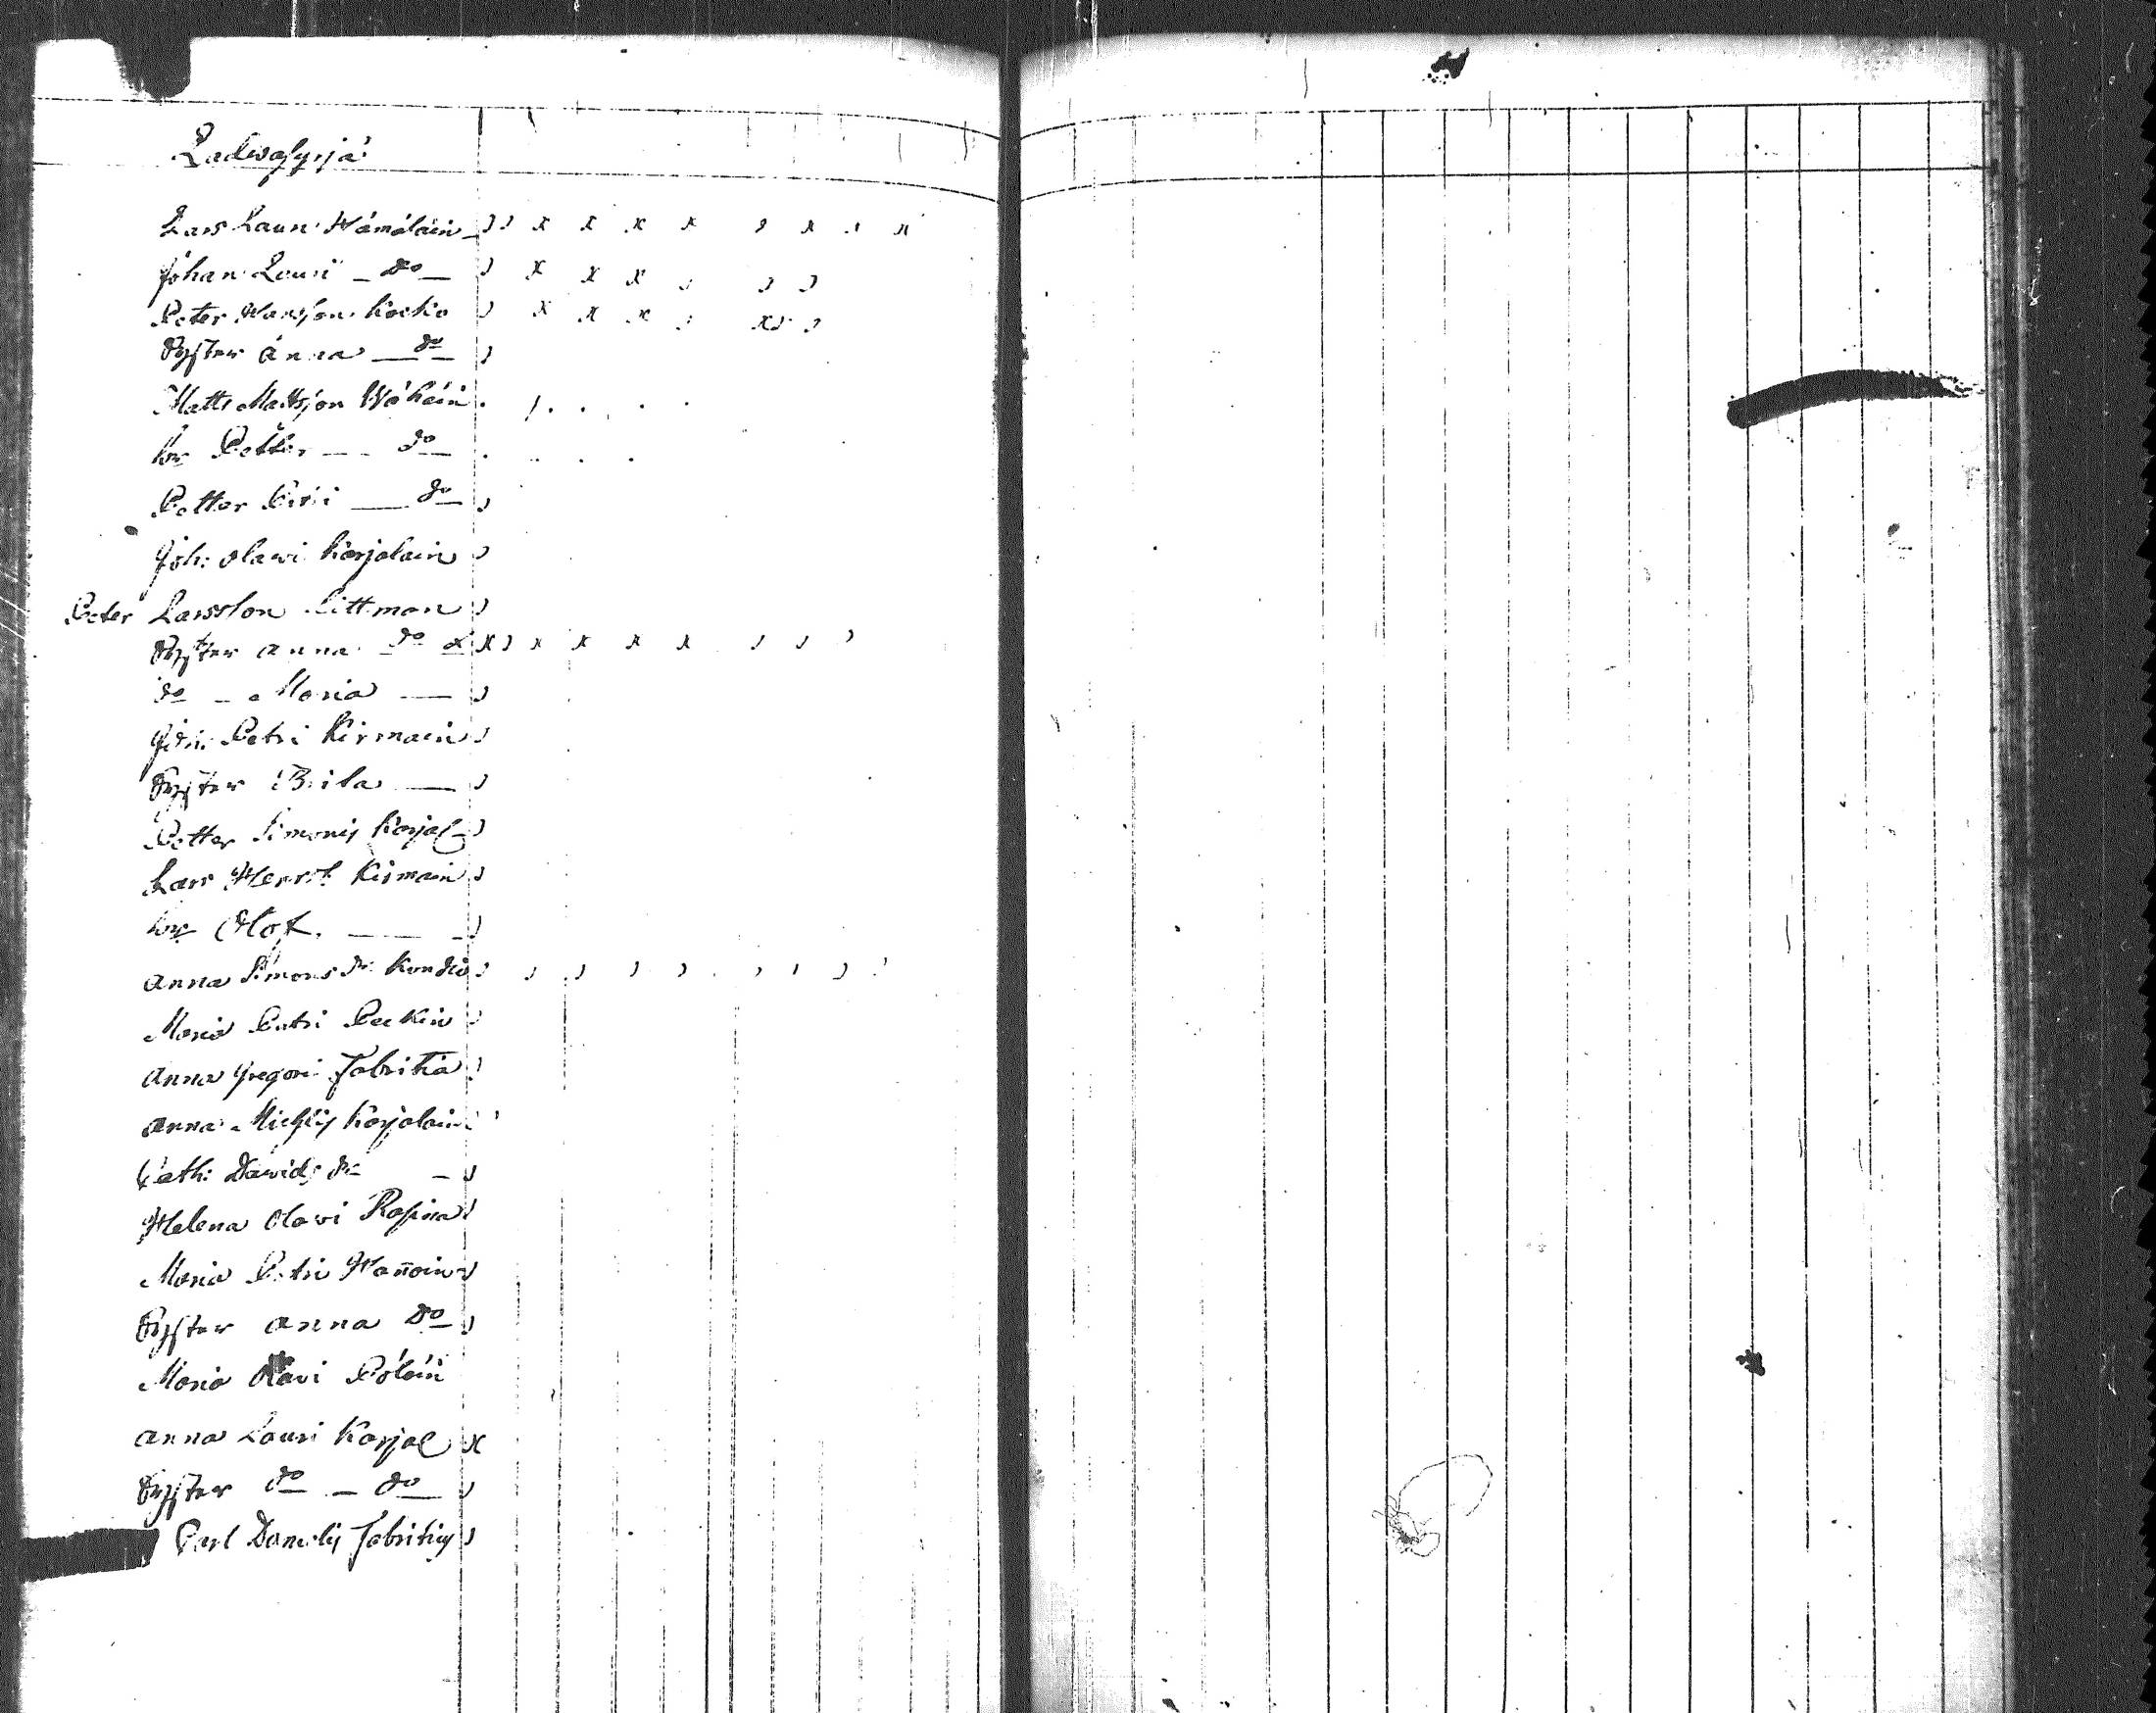 Ladwasyrjä
Lars Lauri Hämäläin
Johan Lauri do
Peter Hansson Kocko
Syster Anna do
Matts Mattsson Wähäin
br Petter do
Petter Petri do
Joh: Olavi Karjalain
Peter Larsson Littman
Syster Anna do
do Maria
Joh: Petri Kirmain
Syster Brita
Petter Simonis Karjal
Lars Henr Kirmain
br Olof
Anna Simons dr
Maria Petri
Anna Gregori Fabritia
Anna Karjalain
Cath: Davids dr
Helena Olavi
Maria Petri Hañoin
Syster Anna do
Maria Olavi Pöläin
Anna Lauri Karjal
Syster do do
Carl Fabritiy